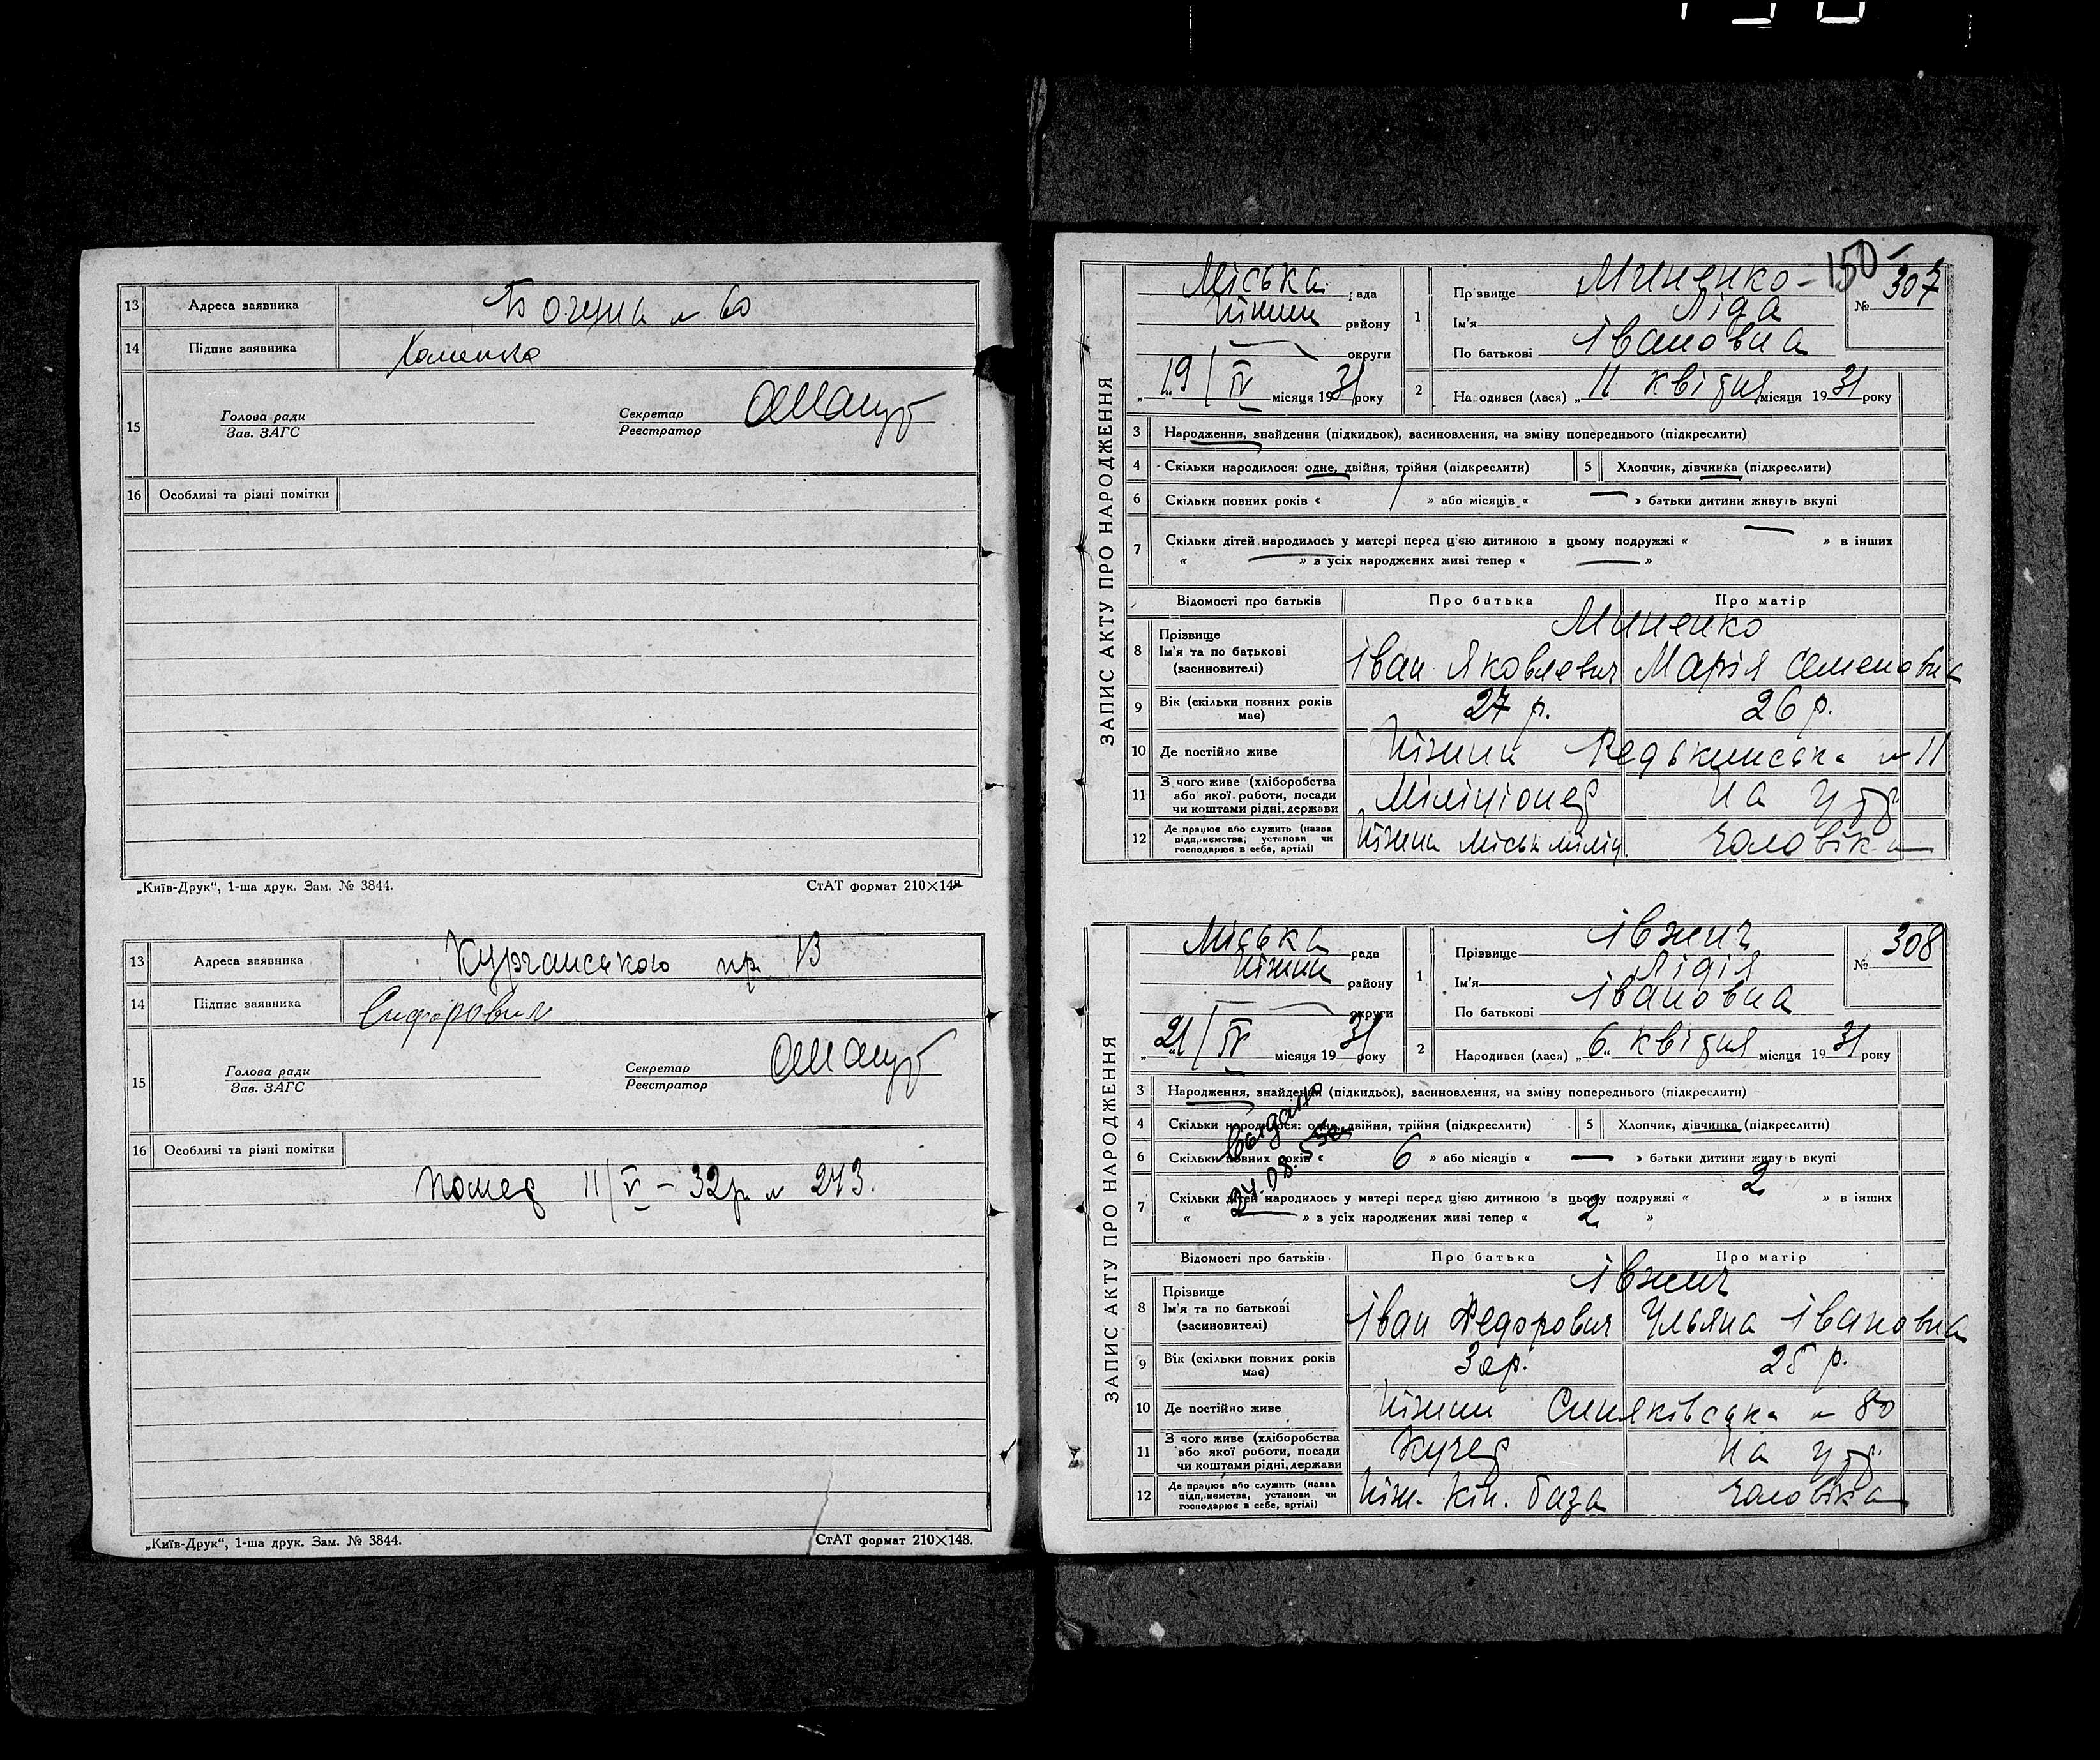 13 Адреса заявника № 60
14 Підпис заявника
15 Голова ради Секретар
Зав. ЗАГС Реєстратор
16 Особливі та різні помітки
„Київ-Друк“, 1-ша друк. Зам. № 3844. СтАТ формат 210×148
13 Адреса заявника пр. 13
14 Підпис заявника
15 Голова ради Секретар
Зав. ЗАГС Реєстратор
16 Особливі та різні помітки
Помер 11/V – 32р № 273.
„Київ-Друк“, 1-ша друк. Зам. № 3844. СтАТ формат 210×148.
150
ЗАПИС АКТУ ПРО НАРОДЖЕННЯ
Міська рада
Ніжин району
округи
„19/IV місяця 1931 року
1 Прізвище Миненко
Ім'я Ліда
По батькові Івановна
№ 307
2 Народився (лася) „11 квітня місяця 1931 року
3 Народження, знайдення (підкидьок), васиновлення, на зміну попереднього (підкреслити)
4 Скільки народилося: одне, двійня, трійня (підкреслити) 5 Хлопчик, дівчинка (підкреслити)
6 Скільки повних років « » або місяців « — » батьки дитини живуть вкупі
7 Скільки дітей народилось у матері перед цією дитиною в цьому подружжі « — » в інших
« — » з усіх народжених живі тепер « — »
Відомості про батьків Про батька Про матір
8 Прізвище Миненко
Ім'я та по батькові Іван Яковлевич Марія Семеновна
(васиновителі)
9 Вік (скільки повних років має) 27 р. 26 р.
10 Де постійно живе Ніжин Редькинська № 11
11 З чого живе (хліборобства
або якої роботи, посади Міліціонер На утр
чи коштами рідні, держави
12 Де працює або служить (назва
підприємства, установи чи Ніжин Міськ міліц. чоловіка
господарює в себе, артілі)
ЗАПИС АКТУ ПРО НАРОДЖЕННЯ
Міська рада
Ніжин району
округи
„21/IV місяця 1931 року
1 Прізвище Івжич
Ім'я Лідія
По батькові Івановна
№ 308
2 Народився (лася) „6„ квітня місяця 1931 року
3 Народження, знайдення (підкидьок), васиновлення, на зміну попереднього (підкреслити)
4 Скільки народилося: одне, двійня, трійня (підкреслити) 5 Хлопчик, дівчинка (підкреслити)
6 Скільки повних років « 6 » або місяців « — » батьки дитини живуть вкупі
Выдано
7 Скільки дітей народилось у матері перед цією дитиною в цьому подружжі « 2 » в інших
« — » з усіх народжених живі тепер « 2 »
Відомості про батьків Про батька Про матір
8 Прізвище Івжич
Ім'я та по батькові Іван Федорович Ульяна Івановна
(васиновителі)
9 Вік (скільки повних років має) 25 р.
10 Де постійно живе Ніжин Синяківська № 80
11 З чого живе (хліборобства
або якої роботи, посади Кучер На утр.
чи коштами рідні, держави
12 Де працює або служить (назва
підприємства, установи чи Ніж. Кін. база чоловіка
господарює в себе, артілі)